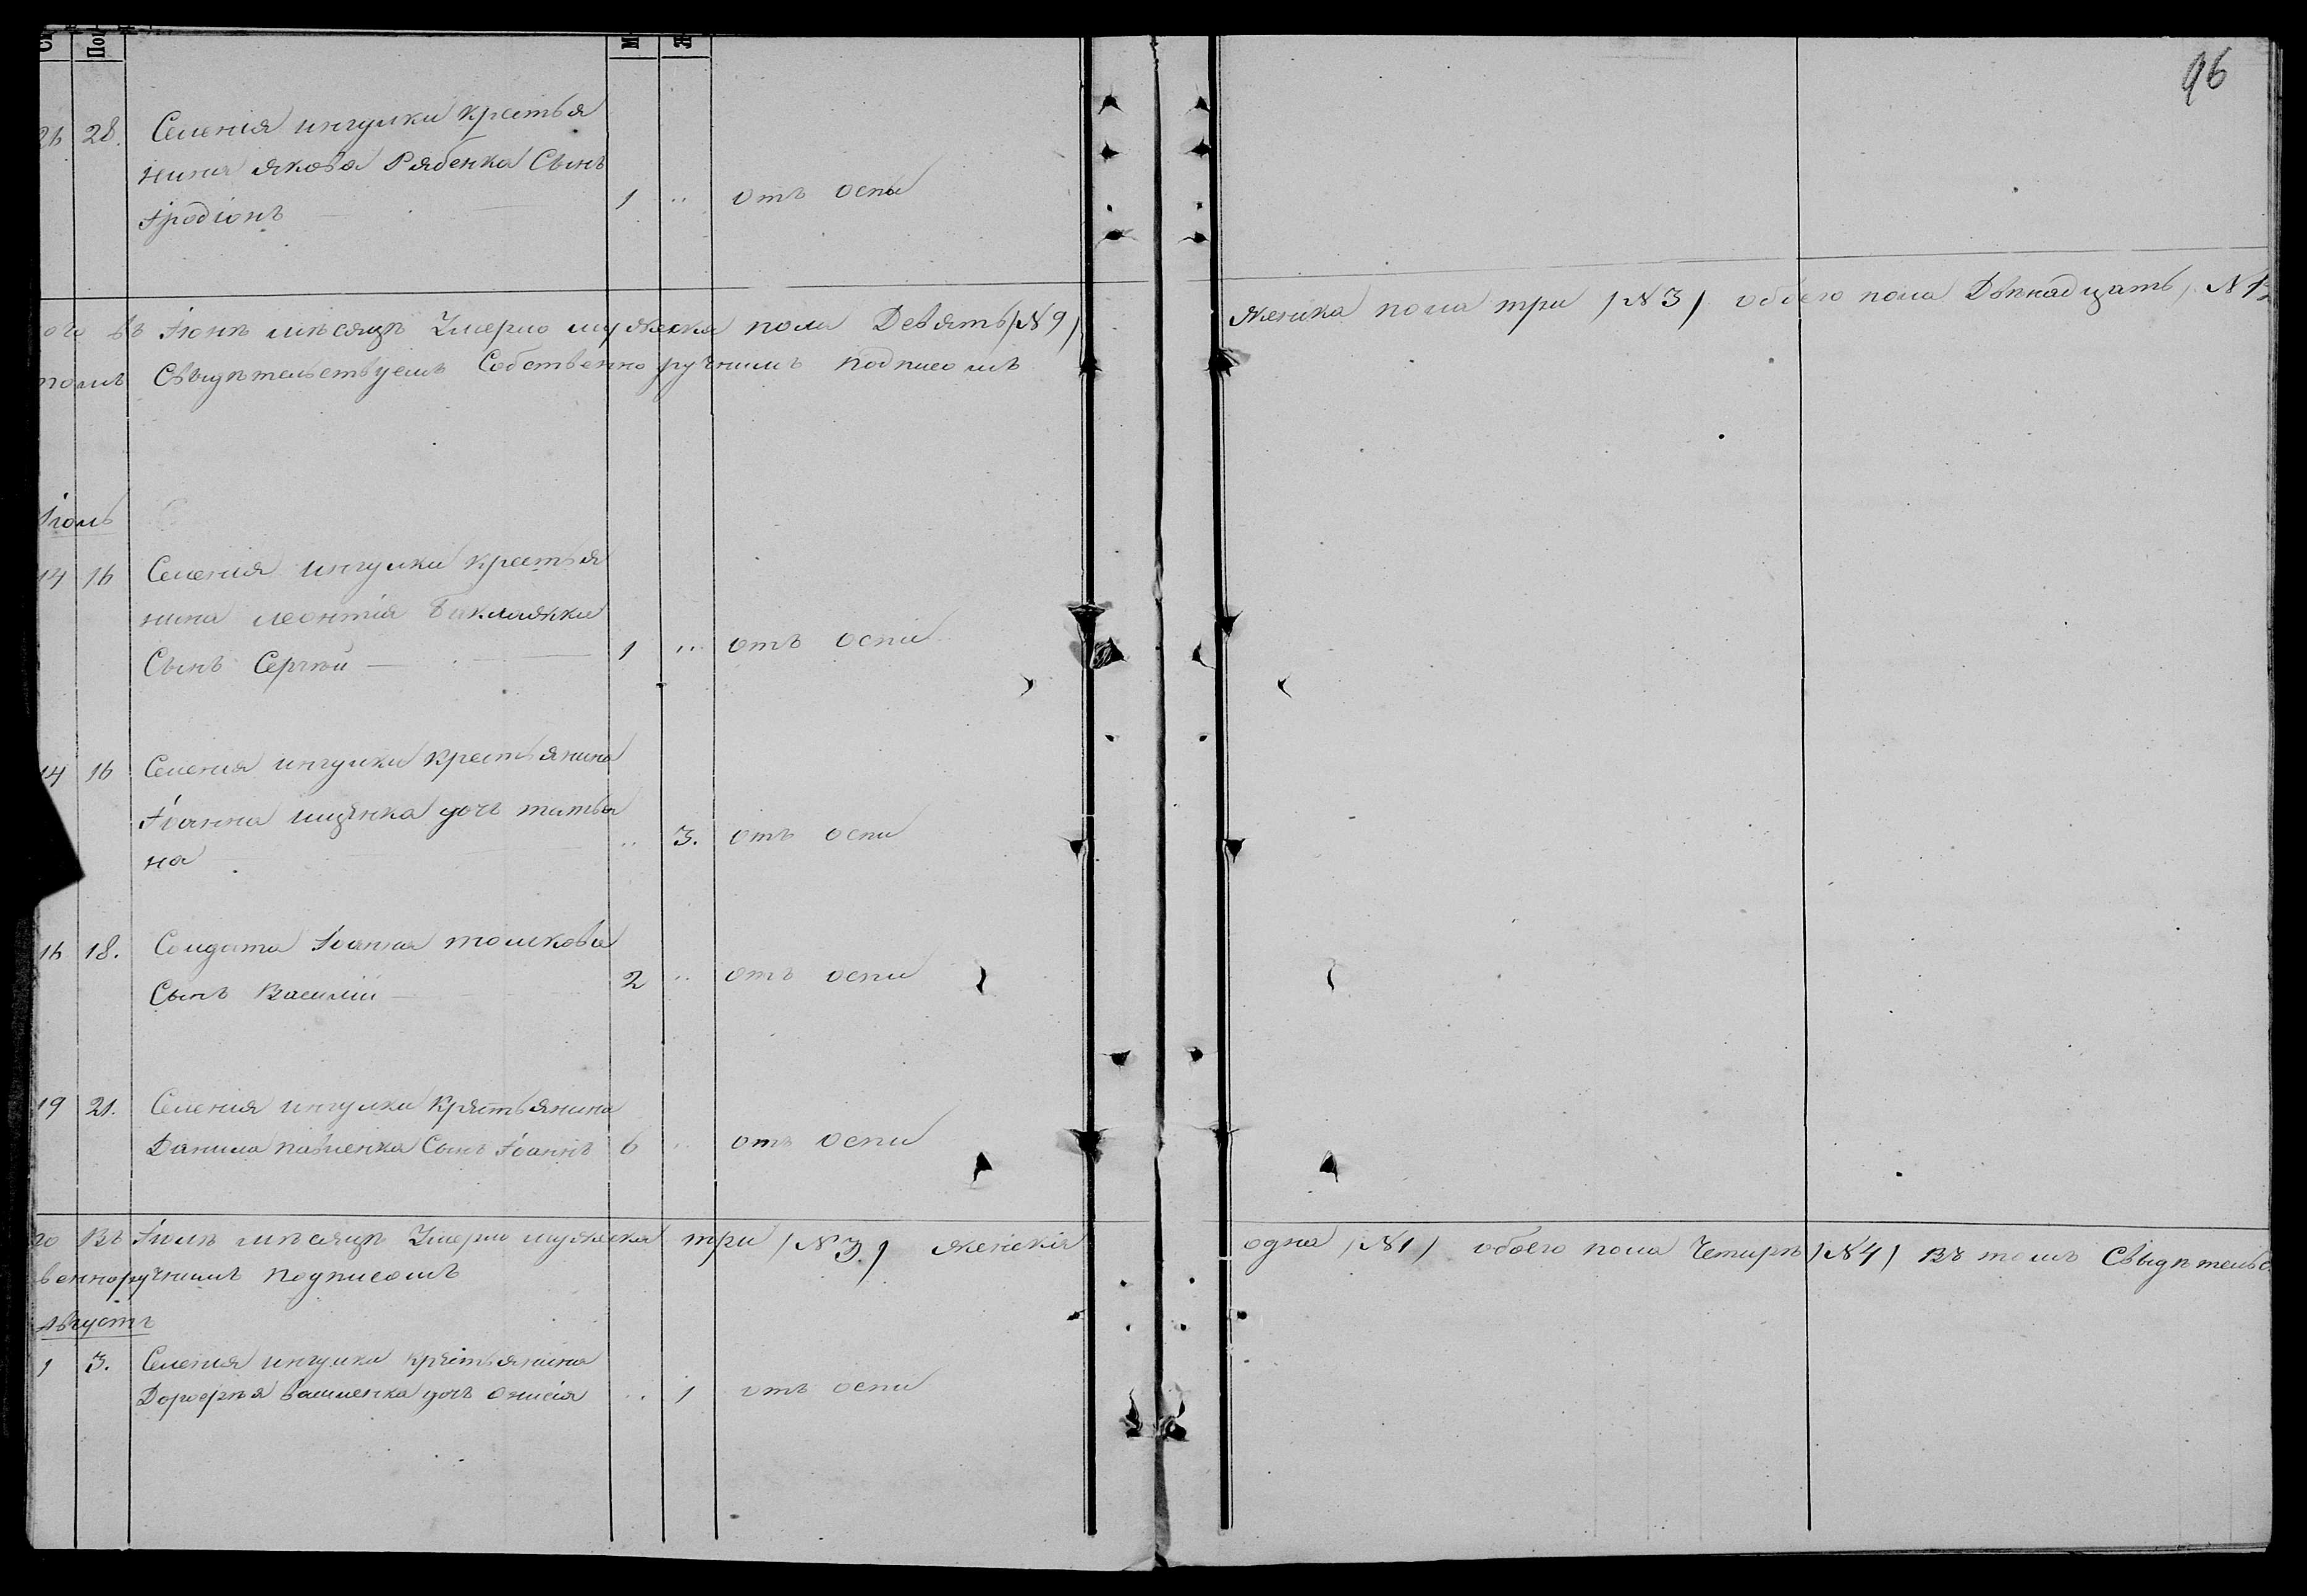 96
26 28. Селенія ингулки крестья
нина якова Рябенка Сынъ
Іродіонъ 1 " отъ оспи
ого въ Іюнѣ мѣсяцѣ Умерло мужеска пола Девять /№ 9/ женска пола три /№ 3/ обоего пола Двѣнадцать /№ 12
томъ Свыдѣтельствуемъ Собственноручнимъ подписомъ
Іюль
14 16 Селенія ингулки крестья
нина леонтія Баклажки
Сынъ Сергѣй 1 " отъ оспи
14 16 Селенія ингулки крестьянина
Іоанна ищенка дочь татья
на " 3. отъ оспи
16 18. Солдата Іоанна толкова
Сынъ Василій 2 " отъ оспи
19 21. Селенія ингулки крестьянина
Данила павленка Сынъ Іоаннъ 6 " отъ оспи
го Въ Іюлѣ мѣсяцѣ Умерло мужеска три /№ 3/ женскія одна /№ 1/ обоего пола Четирѣ /№ 4/ въ томъ Свыдѣтельс
венноручнимъ подписомъ
Августъ
1 3. Селенія ингулки крестьянина
Дорофѣя василенка дочь онисія " 1 отъ оспи